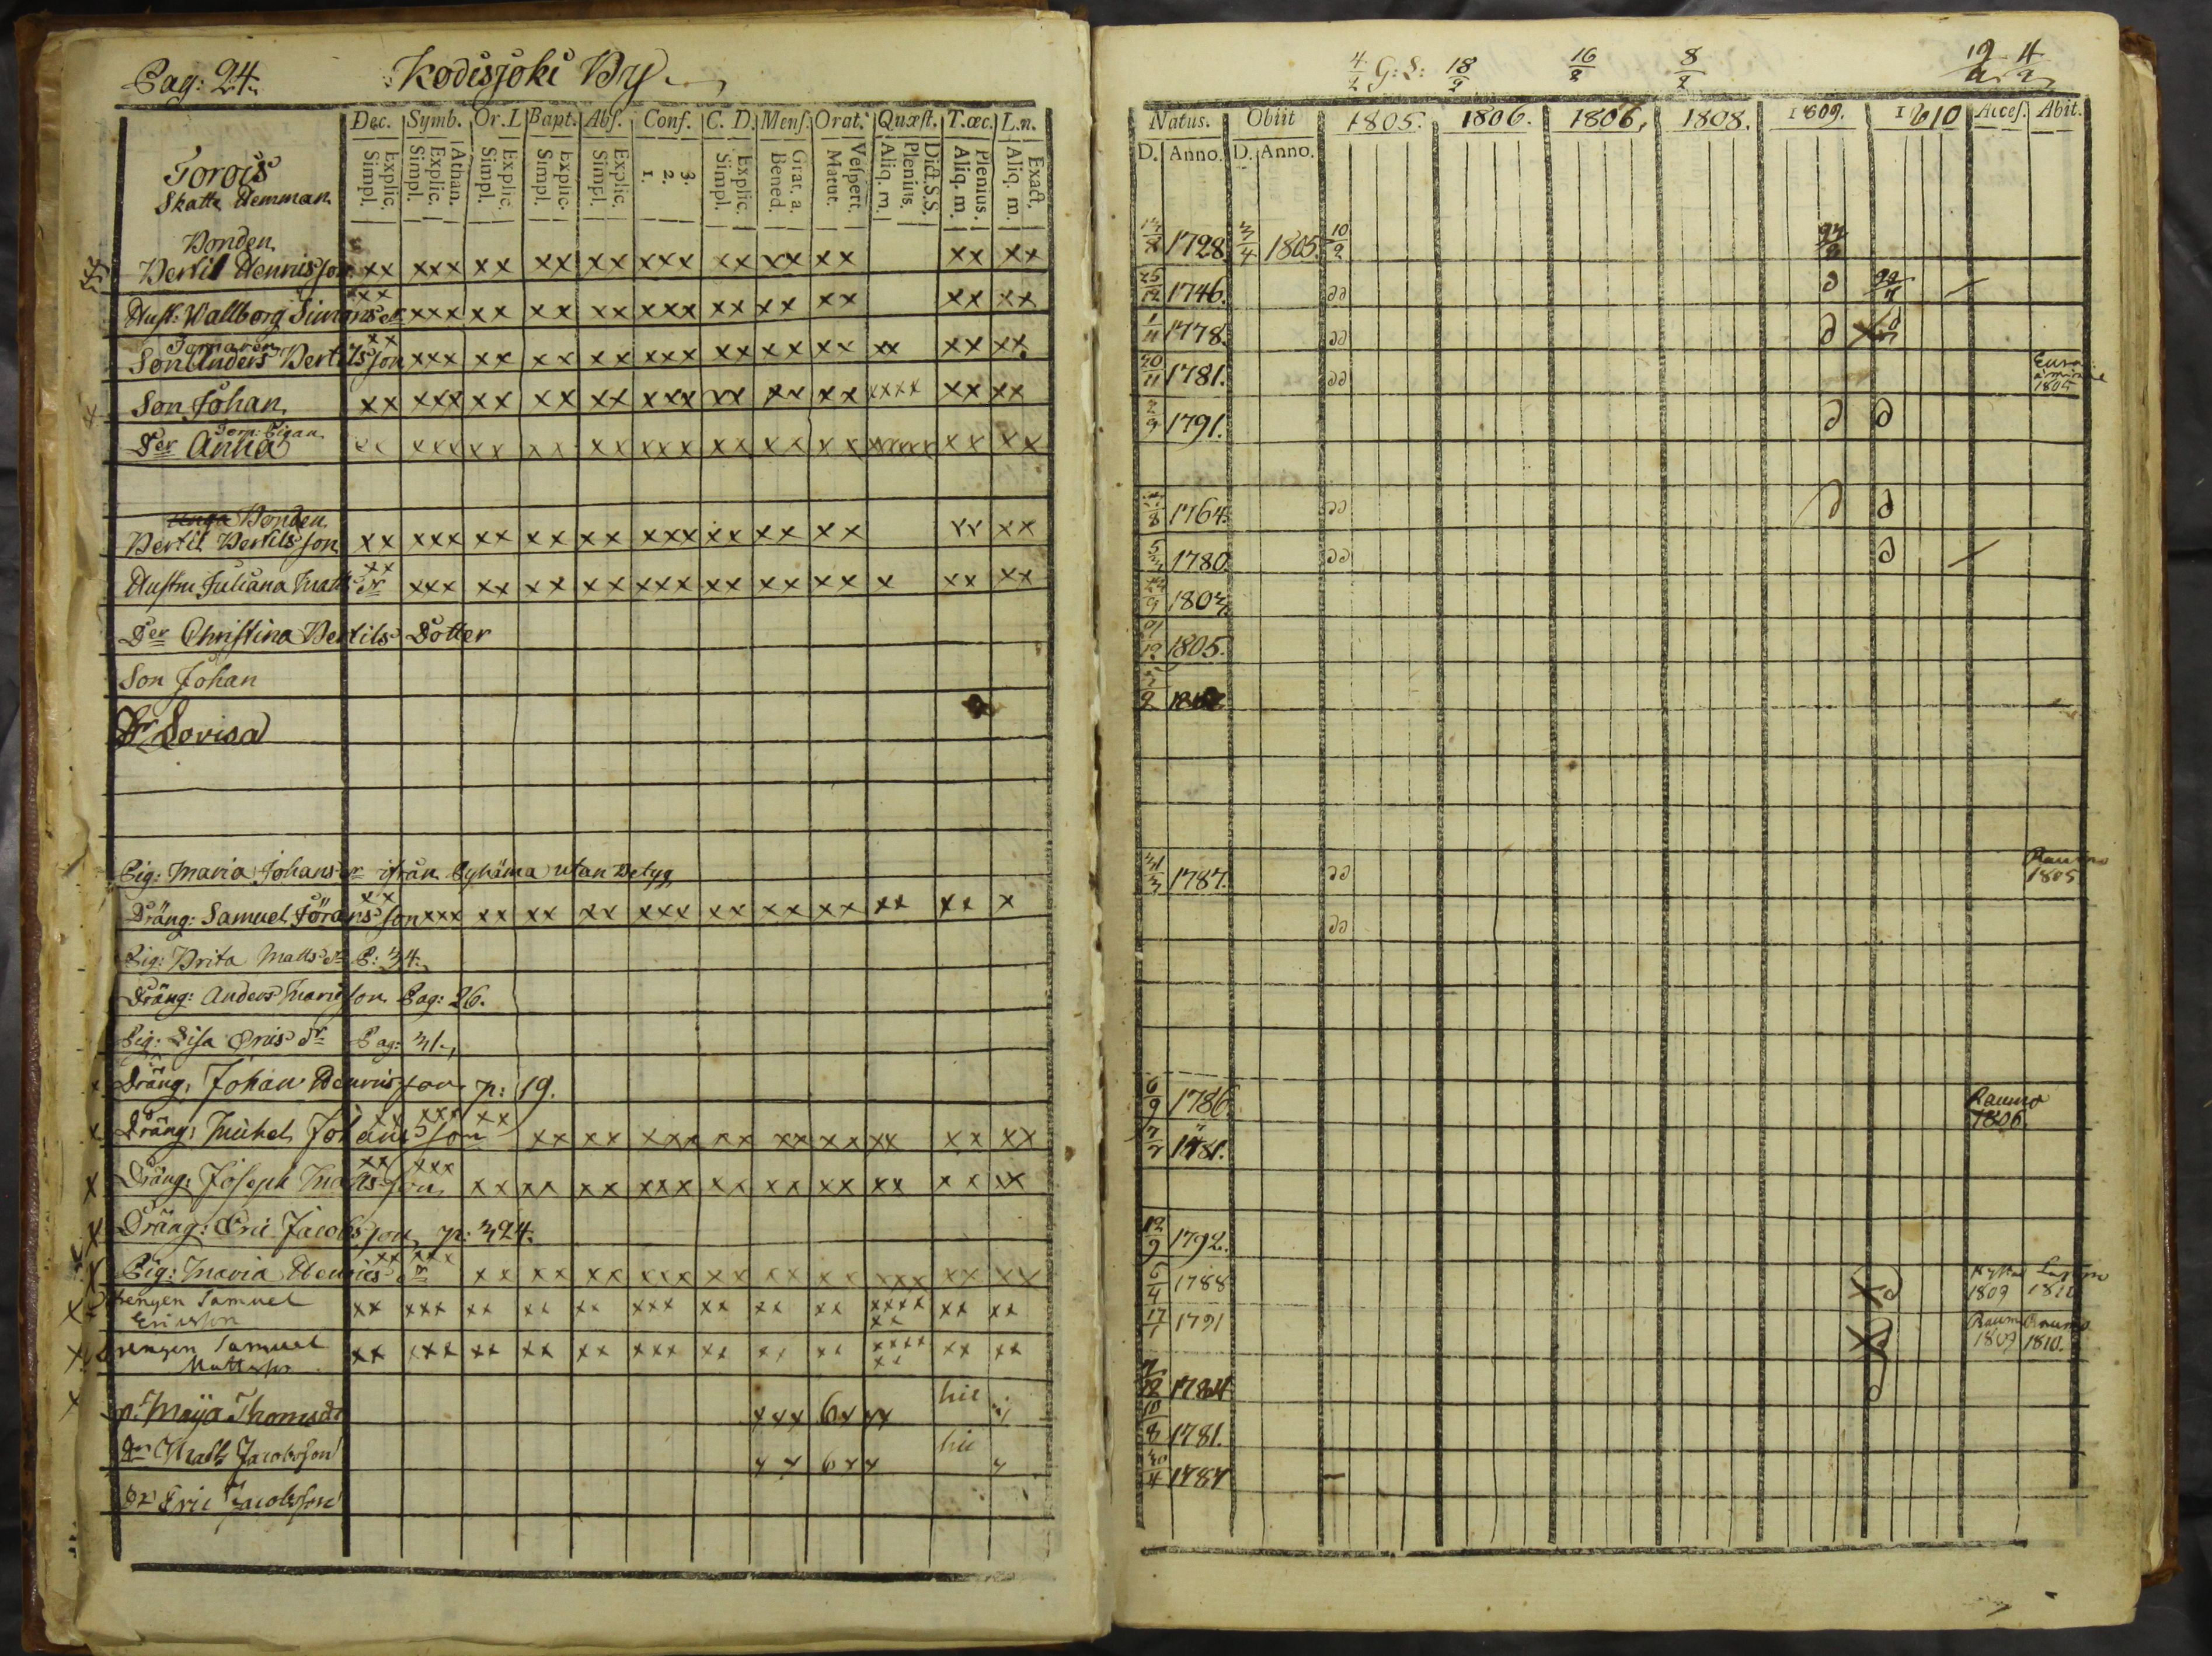 Pag: 24. Kodisjoki By
Dec. Symb. Or.D. Bapt. Abs. Conf. C. D. Mens. Orat. Quæst. T.œc. L.n.
Explic. Simpl. Athan. Explic. Simpl. Explic. Simpl. Explic. Simpl. Explic. Simpl. 3. 2. 1. Explic. Simpl. Grat. a. Bened. Vespert. Matut. Dict.S.S. Plenius. Aliq. m. Plenius. Aliq. m. Exact. Aliq. m.
Torois
Skatte Hemman
Bonden
Bertil Hennisson xx xxx xx xx xx xxx xx xx xx xx xx
Hust: Wallborg Simonsdr xxx xxx xx xx xx xxx xx xx xx xx xx
Son Anders Bertilsson xx xxx xx xx xx xxx xx xx xx xx xx xx
Son Johan xx xxx xx xx xx xxx xx xx xx xxxx xx xx
Der Anna xx xxx xx xx xx xxx xx xx xx xxxxx xx xx
Unga Bonden
Bertil Bertilsson xx xxx xx xx xx xxx xx xx xx xx xx
Hustru Juliana Matts dr xx xxx xx xx xx xxx xx xx xx x xx xx
Der Christina Bertils Dotter
Son Johan
Dr Lovisa
Pig: Maria Johans dr ifrån Pyhäma utan Betyg
Dräng: Samuel Göransson xx xxx xx xx xx xxx xx xx xx xx xx x
Pig: Brita Matts dr P: 34.
Dräng: Anders Pag: 26.
Pig: Lisa Erics dr Pag: 31.
Dräng: Johan Henrisson p: 19.
Dräng: Michel Johansson xx xxx xx xx xx xxx xx xx xx xx xx xx
Dräng: Joseph Mattsson xx xxx xx xx xx xxx xx xx xx xx xx xx
Dräng: Eric Jacobsson p: 324.
Pig: Maria Henrics dr xx xxx xx xx xx xxx xx xx xx xxx xx xx
Drengen Samuel xx xxx xx xx xx xxx xx xx xx xxxx xx xx
Ericsson xx
Drengen Samuel xx xxx xx xx xx xxx xx xx xx xxxx xx xx
Mattsson xx
p. Maja Thomsdr xxx 6x xx hic
Dr Matts Jacobsson x x 6 x x hic x
Dr Eric Jacobsson
4/2 G: S: 18/2 16/2 8/2
Natus. Obiit 1805. 1806. 1806, 1808. 1809. 1810 Access. Abit.
D. Anno. D. Anno.
1728. 3/4 1805. 10/2
25/12 1746.
1/11 1778.
20/11 1781. 1805
1791.
1764.
1780.
1803.
1805.
1787. Raumo
1805
6/9 1786 Raumo
1806.
1781.
12/9 1792.
6/4 1788 1809
17/1 1791 Raumo Raumo
1809 1810.
1784
10/8 1781.
30/4 1787